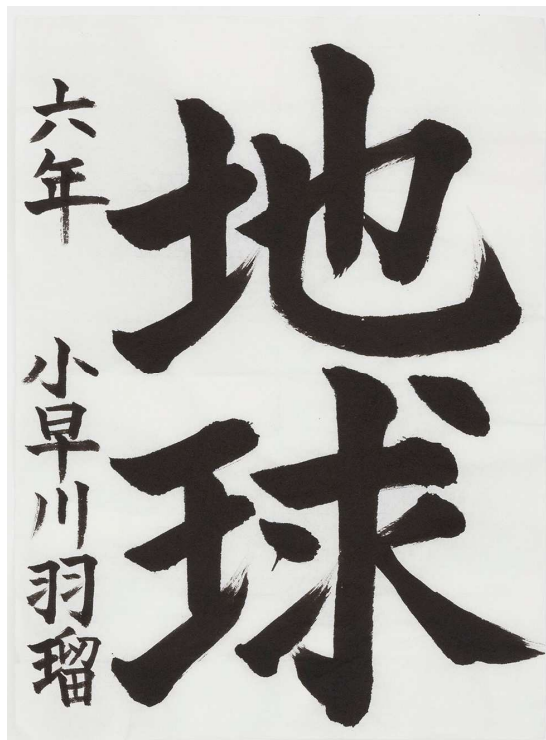 地球
六年 小早川羽瑠